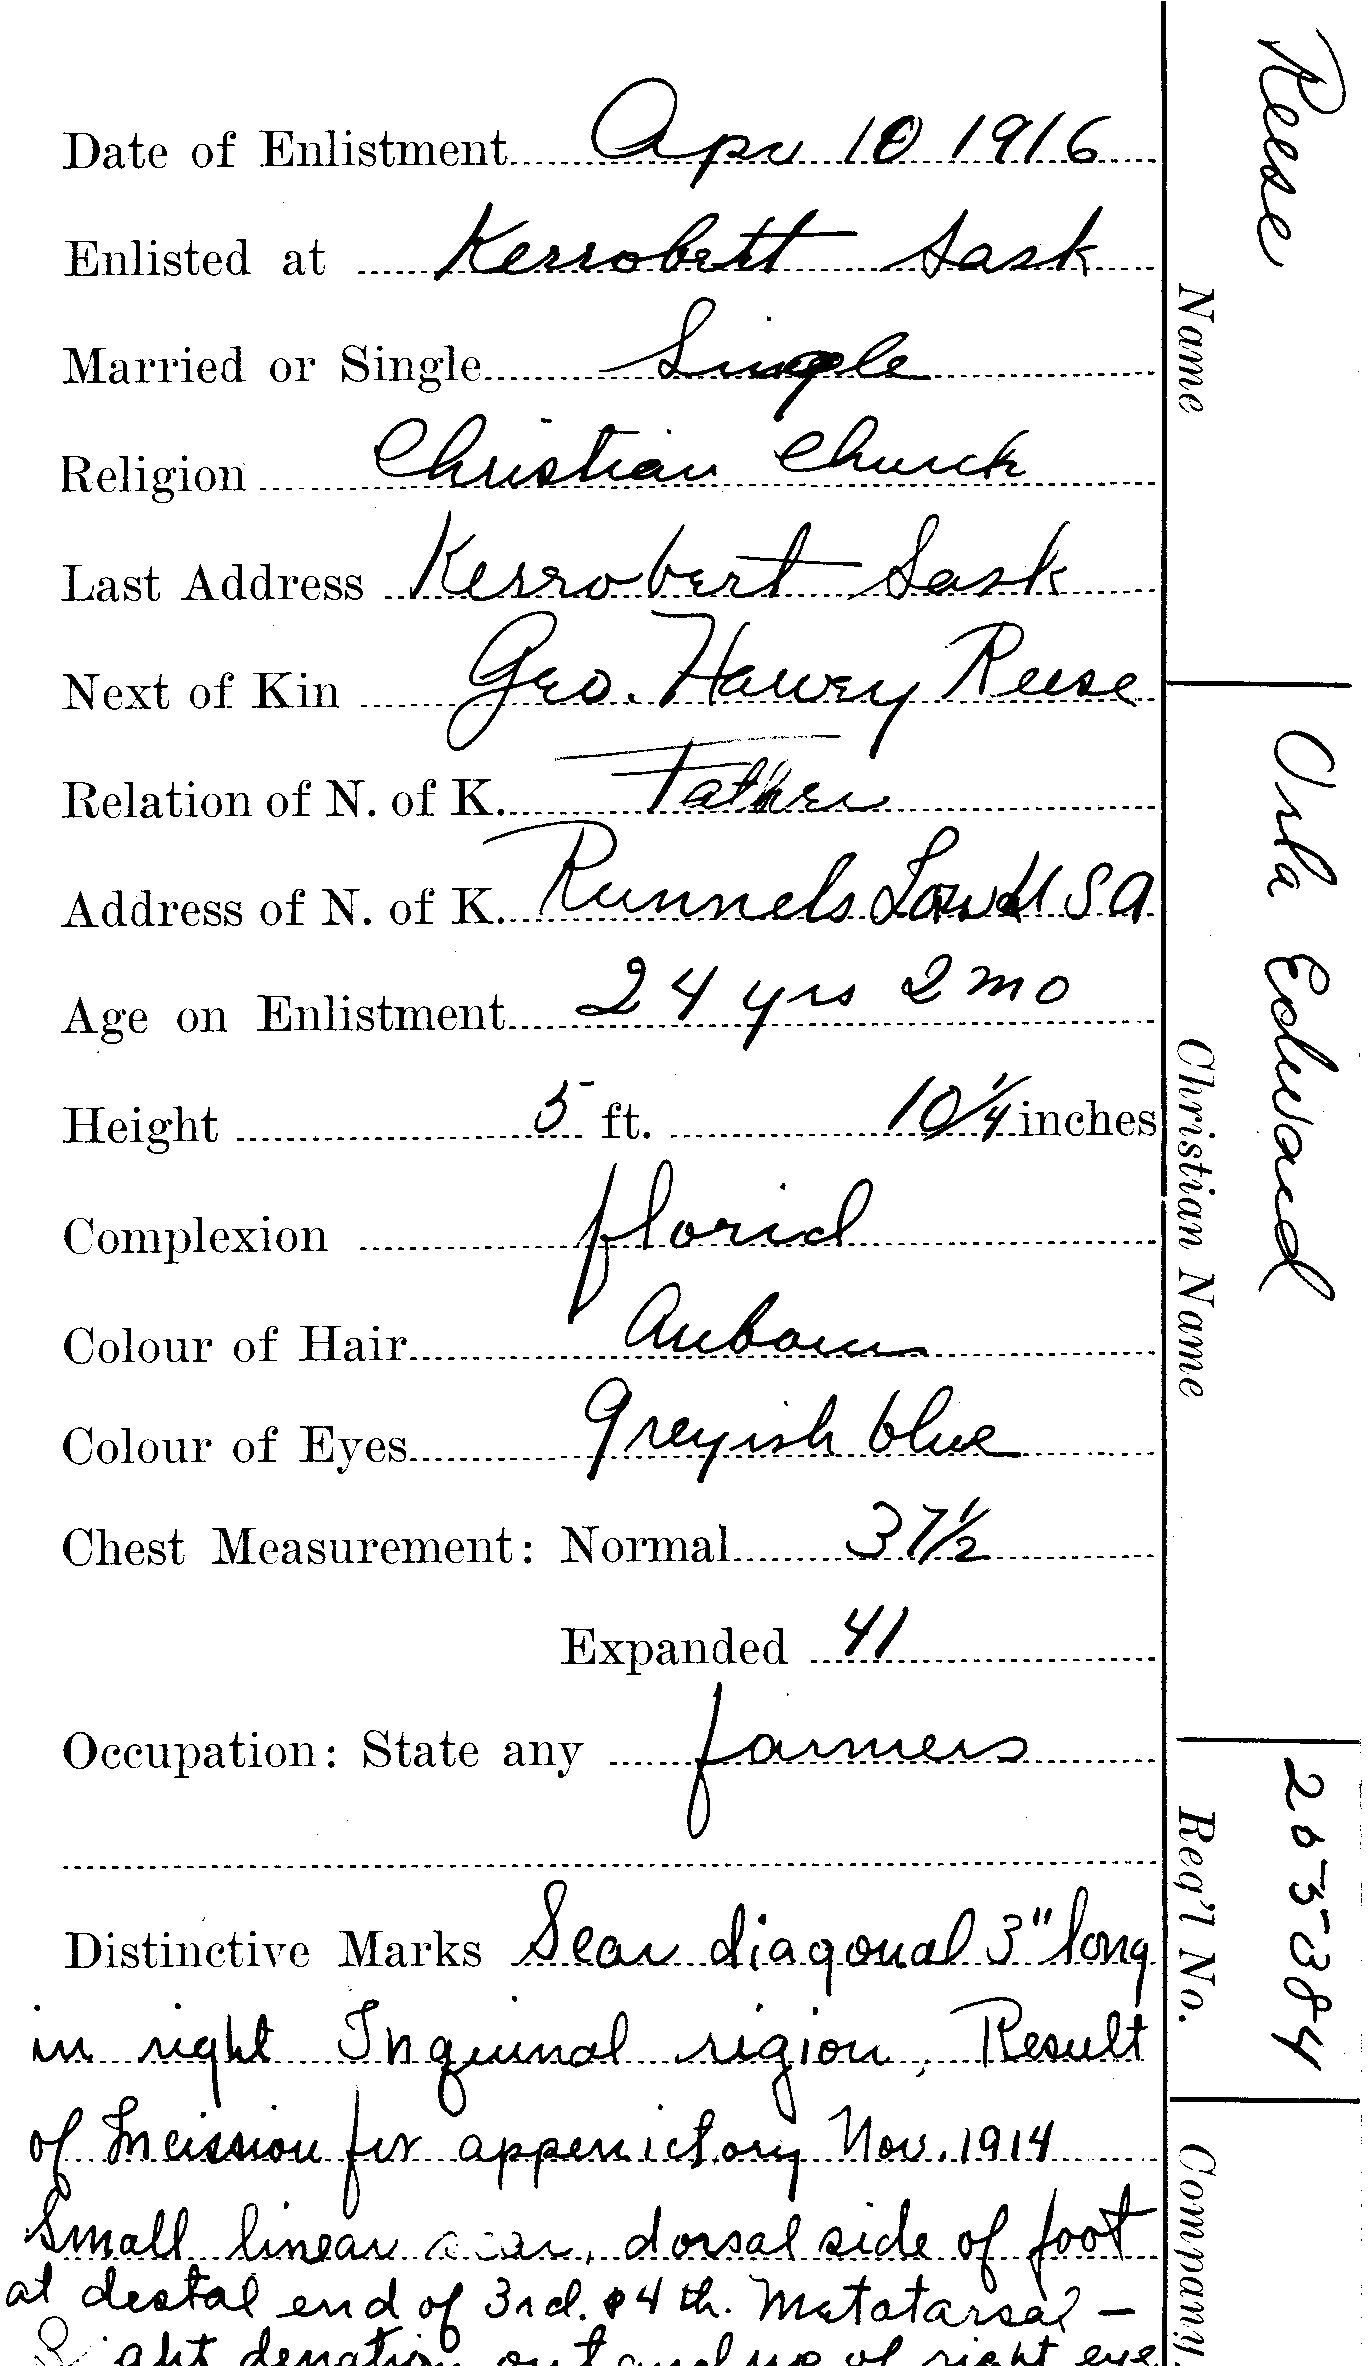 Date of Enlistment Apr 10 1916
Enlisted at Kerrobertt Sask
Married or Single Single
Religion Christian Church
Last Address Kerrobert Sask
Next of Kin Geo. Harvey Reese
Relation of N. of K. Father
Address of N. of K. Runnels Iowa U S A
Age on Enlistment 24 yrs 2 mo
Height 5 ft. 10 1/4 inches
Complexion florid
Colour of Hair Auborn
Colour of Eyes Greyish blue
Chest Measurement: Normal 37 1/2
Expanded 41
Occupation: State any farmers
Distinctive Marks Scar diagonal 3" long
in right Inguinal rigion, Result
of Incission for appenictory Nov. 1914
Small linear scar, dorsal side of foot
at destal end of 3rd. & 4th. Metatarsal –
out and up of right eye
Reese
Name
Orla Edward
Christian Name
Reg'l No.
Company